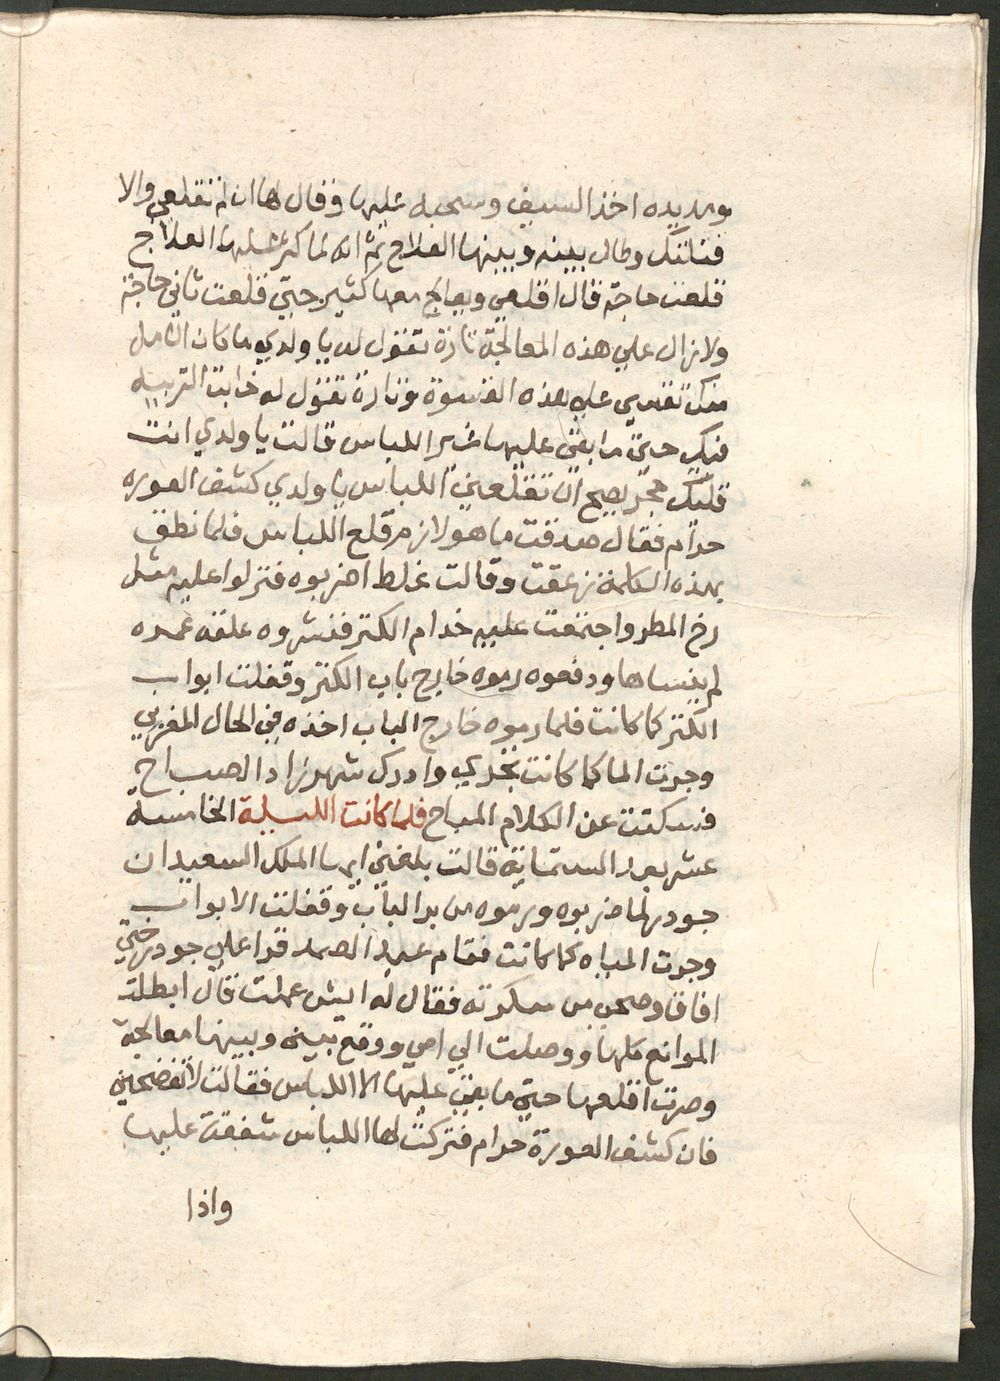 ومد يده اخذ السيف وسحبه عليها وقال لها ان لم تقلعي والا
قتلتك وطال بينه وبينها العلاج ثم انه لما كثر عليها العلاج
قلعت حاجة قال اقلعي ويعالج معها كثير حتي قلعت ثاني حاجة
ولازال علي هذه المعالجة تارة تقول له يا ولدي ما كان الامل
منك تقسي علي هذه القسوة وتارة تقول له خابت التربية
فيك حتي ما بقي عليها غير اللباس قالت يا ولدي انت
قلبك حجر يصح ان تقلعني اللباس يا ولدي كشف العوره
حرام فقال صدقت ما هو لازم قلع اللباس فلما نطق
بهذه الكلمة زعقت وقالت غلط اضربوه فنزلوا عليه مثل
رخ المطر واجتمعت عليه خدام الكنز فنشروه علقه عمره
لم ينساها ودفعوه رموه خارج باب الكنز وقفلت ابواب
الكنز كما كانت فلما رموه خارج الباب اخذه في الحال المغربي
وجرت الما كما كانت تجري وادرك شهرزاد الصباح
فسكتت عن الكلام المباح فلما كانت الليلة الخامسة
عشر بعد الستماية قالت بلغني ايها الملك السعيد ان
جودر لما ضربوه ورموه من برا الباب وقفلت الابواب
وجرت المياه كما كانت فقام عبد الصمد قرا علي جودر حتي
افاق وصحي من سكرته فقال له ايش عملت قال ابطلت
الموانع كلها ووصلت الي امي ووقع بيني وبينها معالجة
وصرت اقلعها حتي ما بقي عليها الا اللباس فقالت لا تفضحني
فان كشف العورة حرام فتركت لها اللباس شفقة عليها
واذا